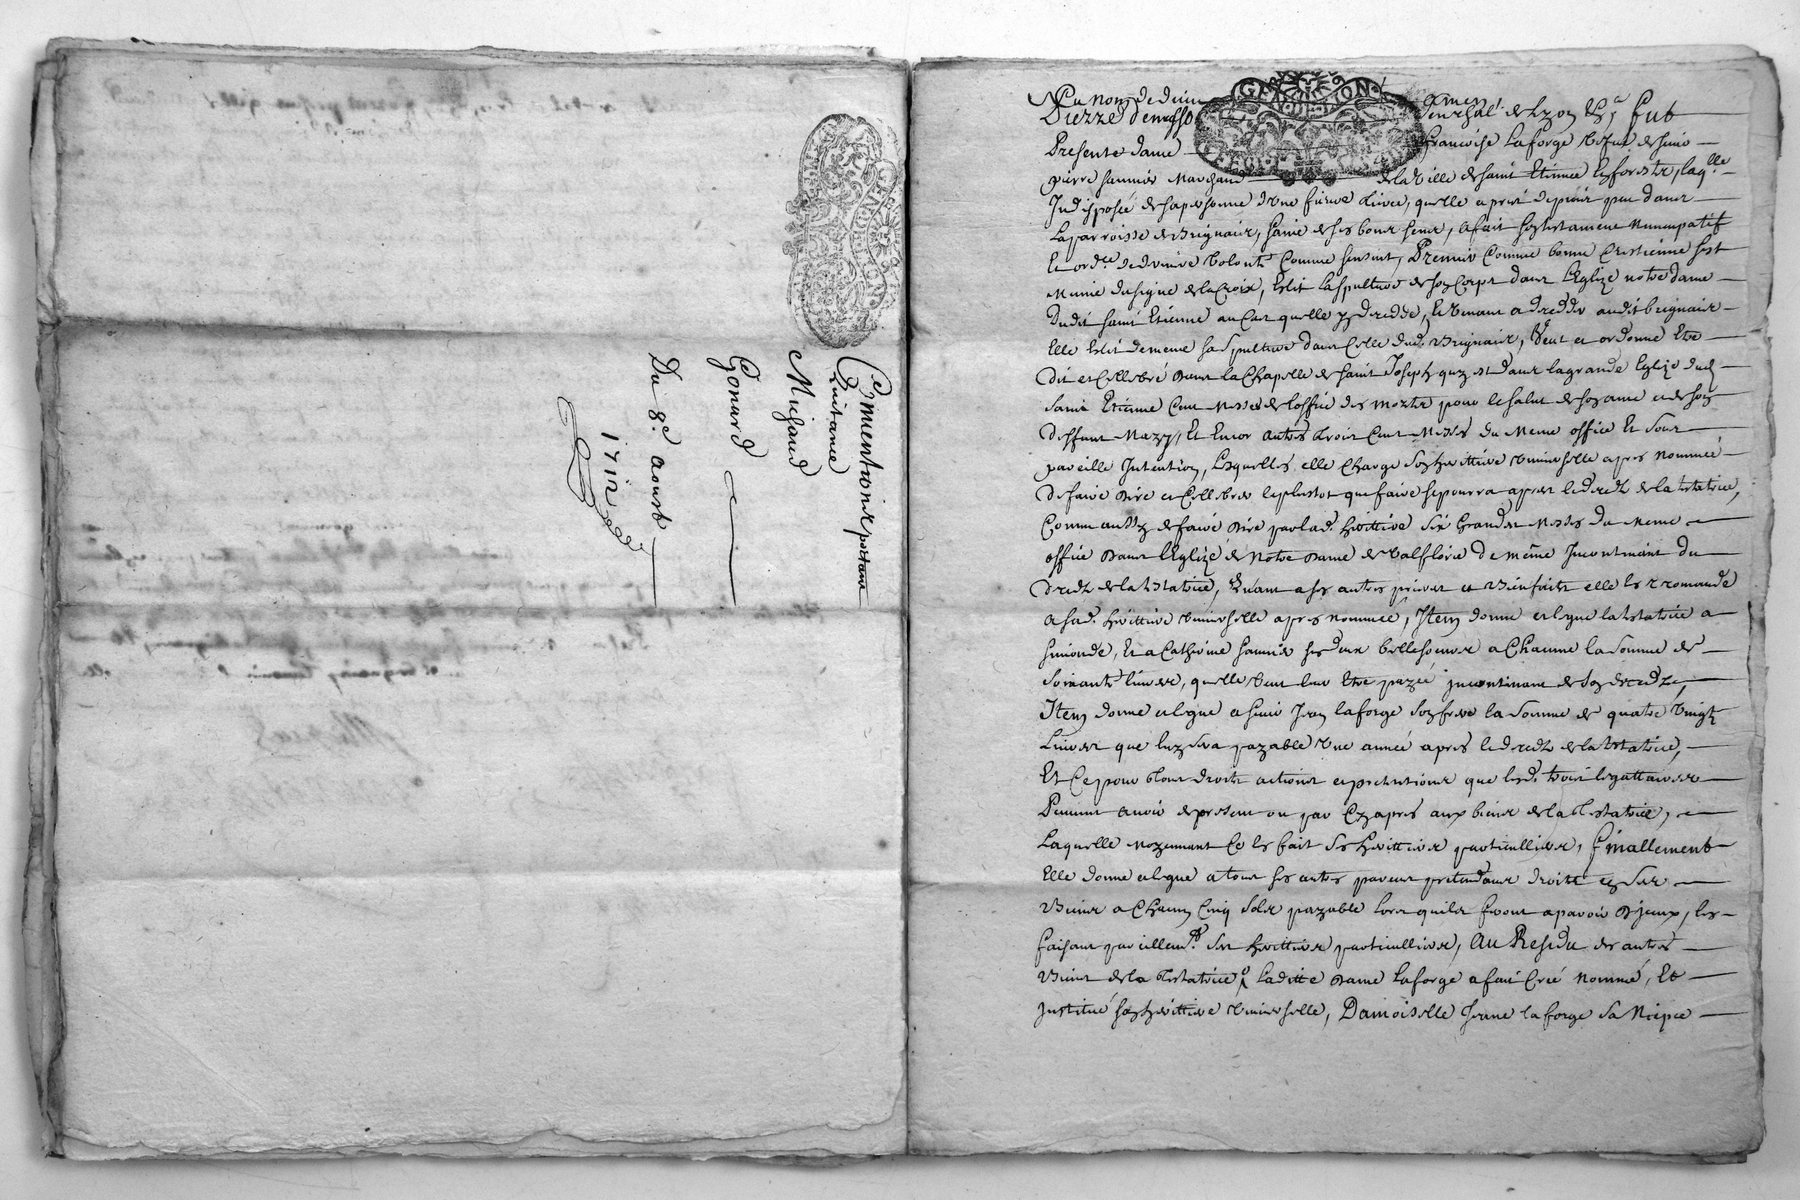 Consentement portant
Quittance
Michaud
Gonard
Du 8e aoust
1712
Au nom de dieu amen
Pierre
Presente dame francoise Laforge vefve de sieur
pierre saunier Marchand de la ville de saint Etienne en forestz, laqlle
Indisposée de sa personne d'une fievre
La parroisse de Brignaix, saine de ses bons sens, a fait son testament Nuncupatif
Et ordce de derniere volonté comme sensuit, Premier comme bonne Crestienne sest
Munie du signe de la Croix, Eslit la sepulture de son Corps dans l'Eglize notre dame
Dudit saint Etienne au Cas quelle y decedde, et venant a decedder audit brignaix
Elle Eslit de meme sa sepulture dans Celle dud. Brignaix, Veut et ordonne Etre
Dit et Cellebré dans la Chapelle de saint Joseph quy est dans la grande Eglize dud
saint Etienne Cent Messes de loffice des Mortz pour le salut de son ame et de son
deffunt Mary, Et Encor autres trois Cent Messes du Meme office Et sous
pareille Intention, Lesquelles elle Charge son herittiere universelle apres nommée
de faire dire et Cellebrer le plustot que faire se pourra apres le decedz de la testatrice,
Comme aussy de faire dire par lad. herittiere six Grandes Messes du Meme
office dans l'Eglize de Notre Dame de Valfleurie de même Incontinant du
decedz de la testatrice, Quant a ses autres prieres et Bienfaits elle les recomande
a sad. herittiere universelle apres nommée, Item donne et legue la testatrice a
simonde, Et a Catherine saunier ses deux bellesoeurs a Chacune la somme de
soixante livres, quelle veut leur Etre payée incontinant de son decedz,
Item donne et legue a sieur Jean laforge son frere la somme de quatre vingtz
Livres que luy sera payable une année apres le decedz de la testatrice,
Et Ce pour tous droits actions et pretentions que lesd. trois legattaires
Peuvent avoir de present ou par Cy apres aux biens de la Testatrice,
Laquelle moyennant Ce les fait ses herittiers particulliers, finallement
Elle donne et legue a tous ses autres parens pretendans droits en ses
Biens a Chacun Cinq solz payable lors quils feront aparoir d'jceux, les
faisant pareillemt ses herittiers particulliers, Au Residu des autres
Biens de la Testatrice, laditte Dame Laforge a fait Créé nommé, Et
jnstitué son herittiere universelle, Damoiselle Jeanne laforge sa Niepce